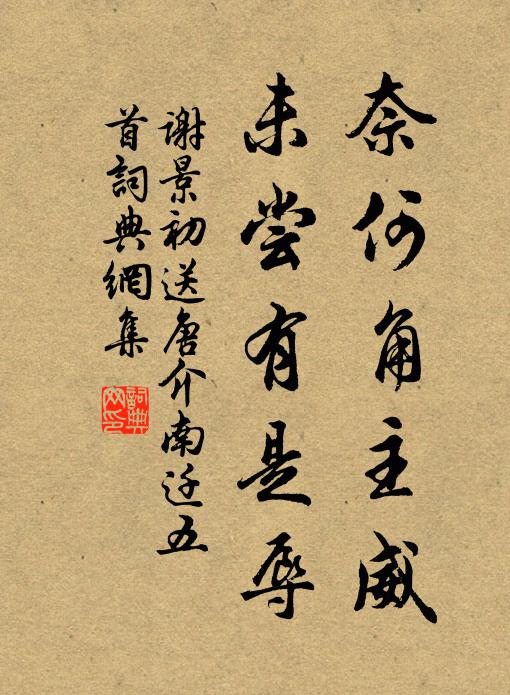 奈何角主威
未尝有是辱
謝景初送唐介南迁五
首詞典網集
詞典
網印